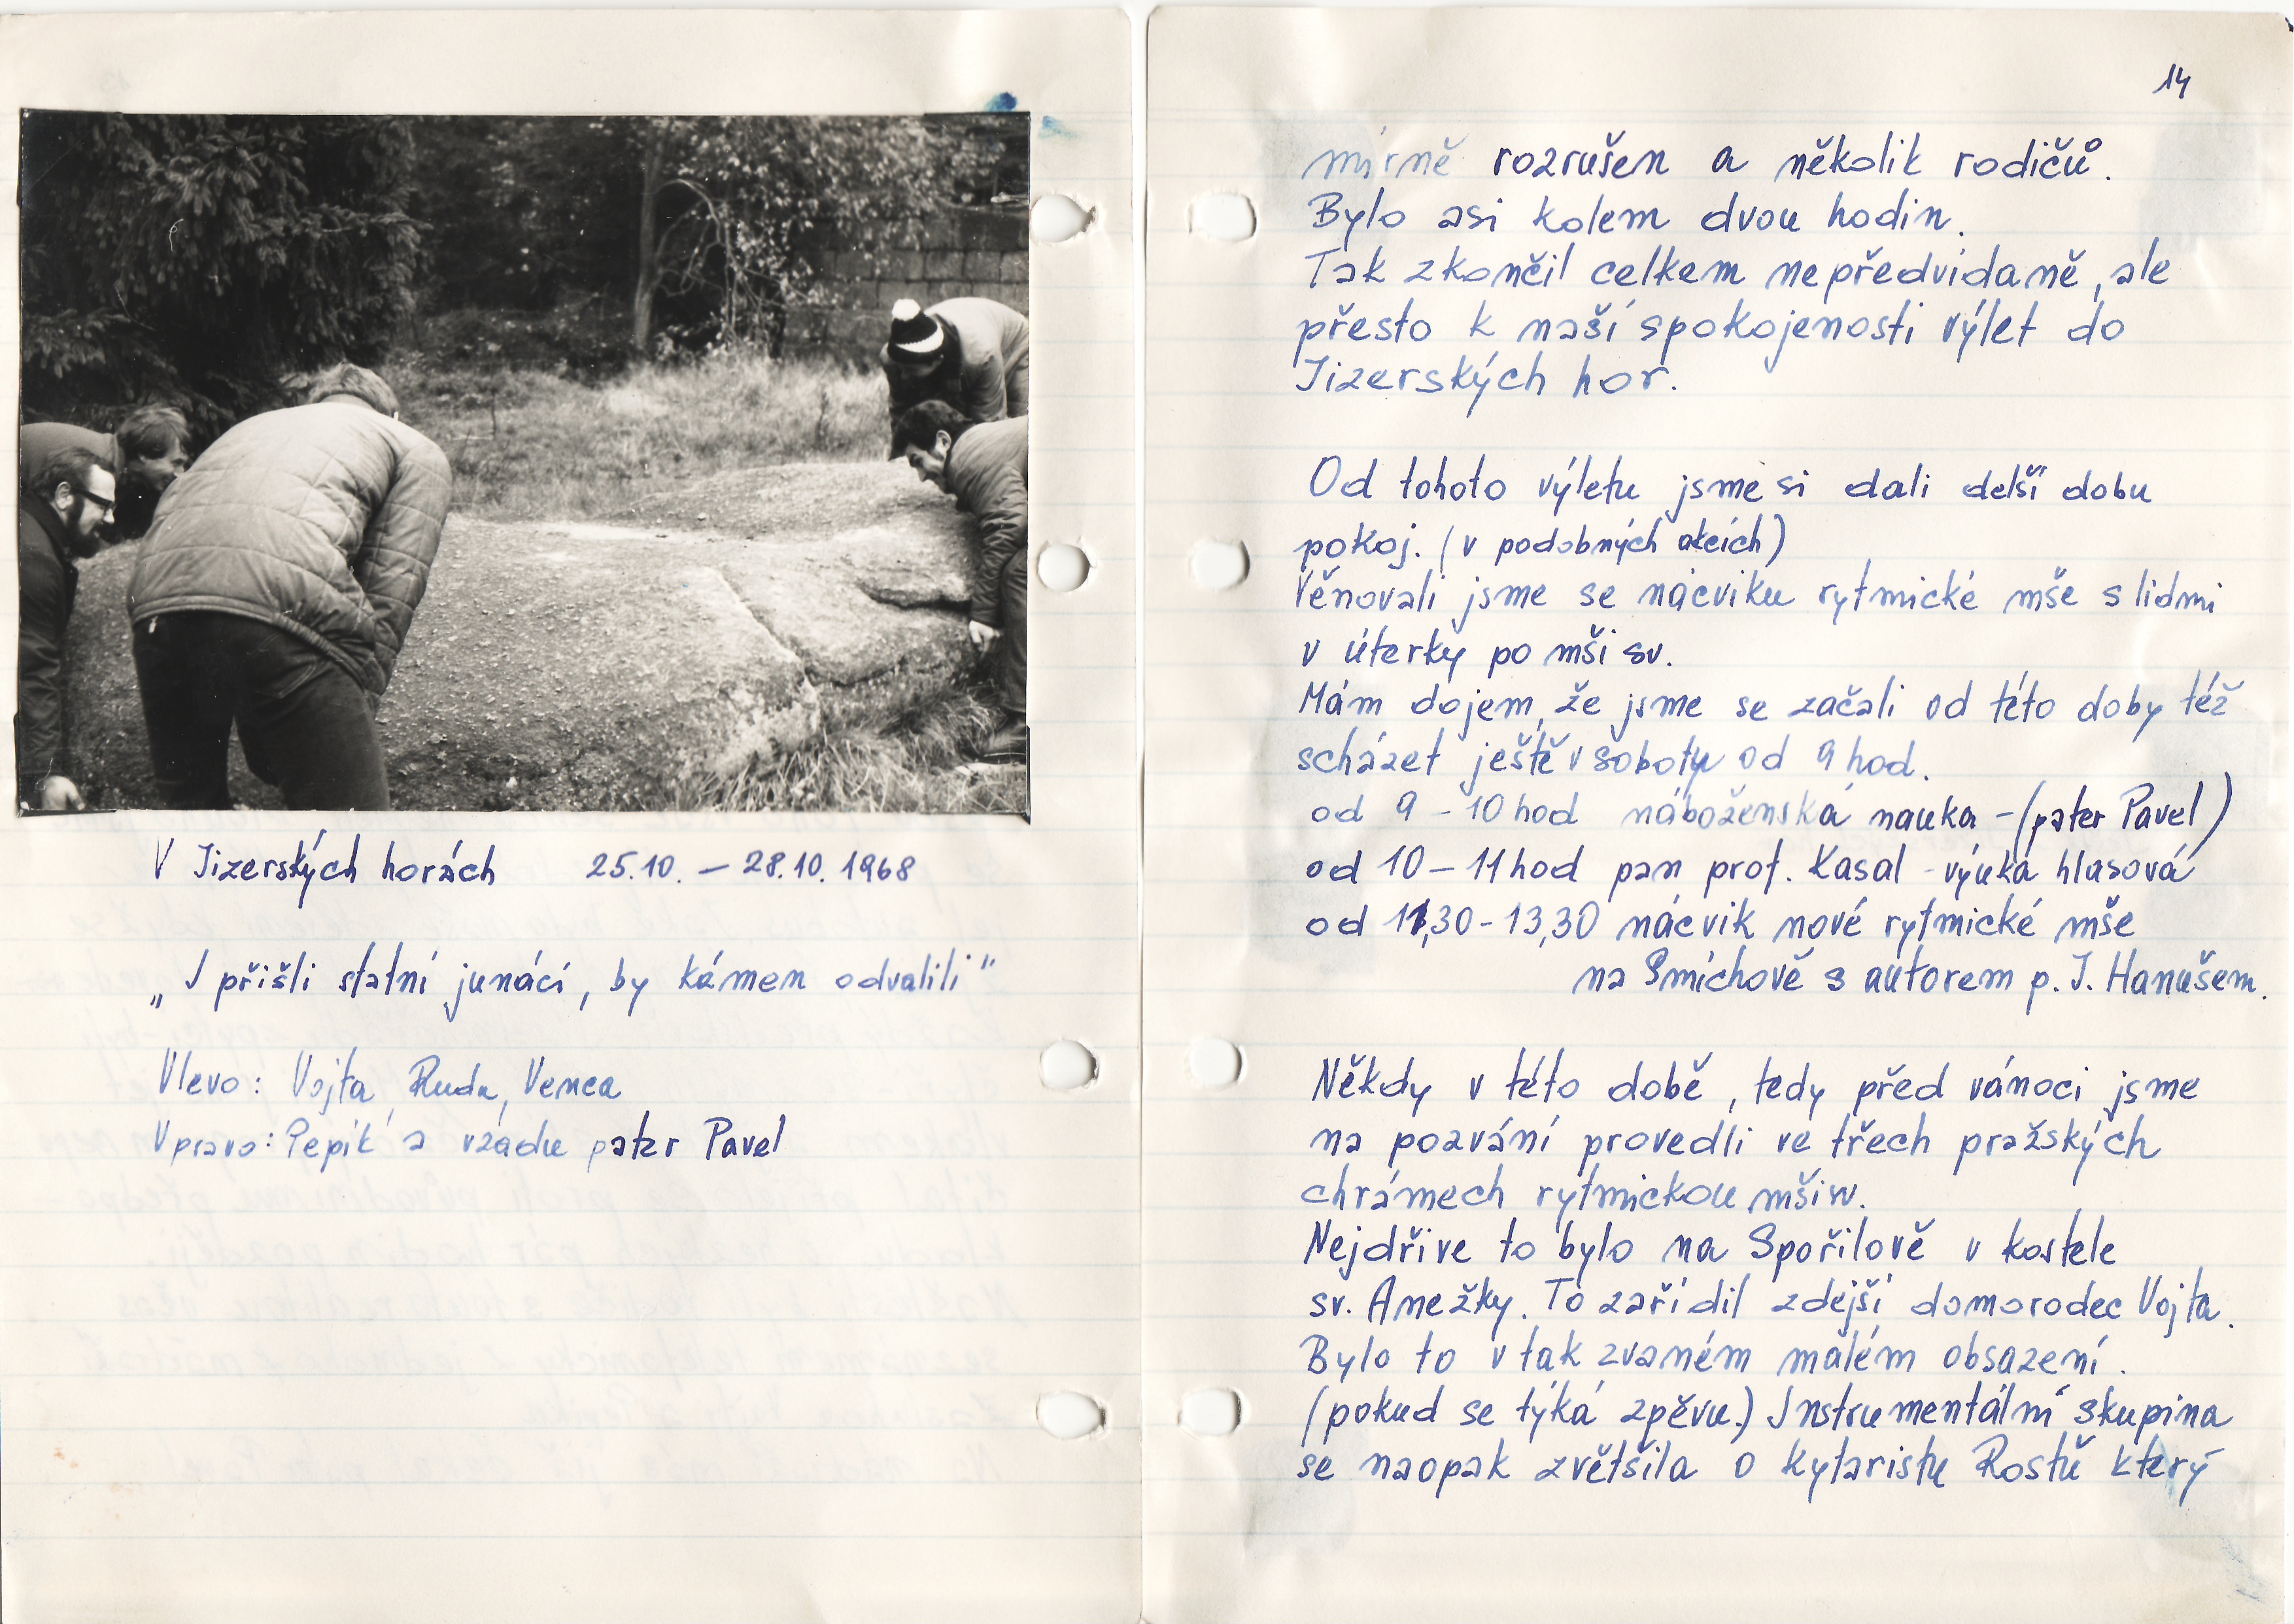 V Jizerských horách 25.10. – 28.10. 1968
„I přišli statní junáci, by kámen odvalili"
Vlevo: Vojta, Ruda, Venca
Vpravo: Pepík a vzadu pater Pavel
14
mírně rozrušen a několik rodičů.
Bylo asi kolem dvou hodin.
Tak zkončil celkem nepředvídaně, ale
přesto k naší spokojenosti výlet do
Jizerských hor.
Od tohoto výletu jsme si dali delší dobu
pokoj. (v podobných akcích)
Věnovali jsme se nácviku rytmické mše s lidmi
v úterky po mši sv.
Mám dojem, že jsme se začali od této doby též
scházet ještě v soboty od 9 hod.
od 9 – 10 hod náboženská nauka – (pater Pavel)
od 10 – 11 hod pan prof. Kasal - výuka hlasová
od 11,30 - 13,30 nácvik nové rytmické mše
na Smíchově s autorem p. J. Hanušem.
Někdy v této době, tedy před vánoci jsme
na pozvání provedli ve třech pražských
chrámech rytmickou mši sv.
Nejdříve to bylo na Spořilově v kostele
sv. Anežky. To zařídil zdejší domorodec Vojta.
Bylo to v tak zvaném malém obsazení.
(pokud se týká zpěvu.) Instrumentální skupina
se naopak zvětšila o kytaristu Rostů který